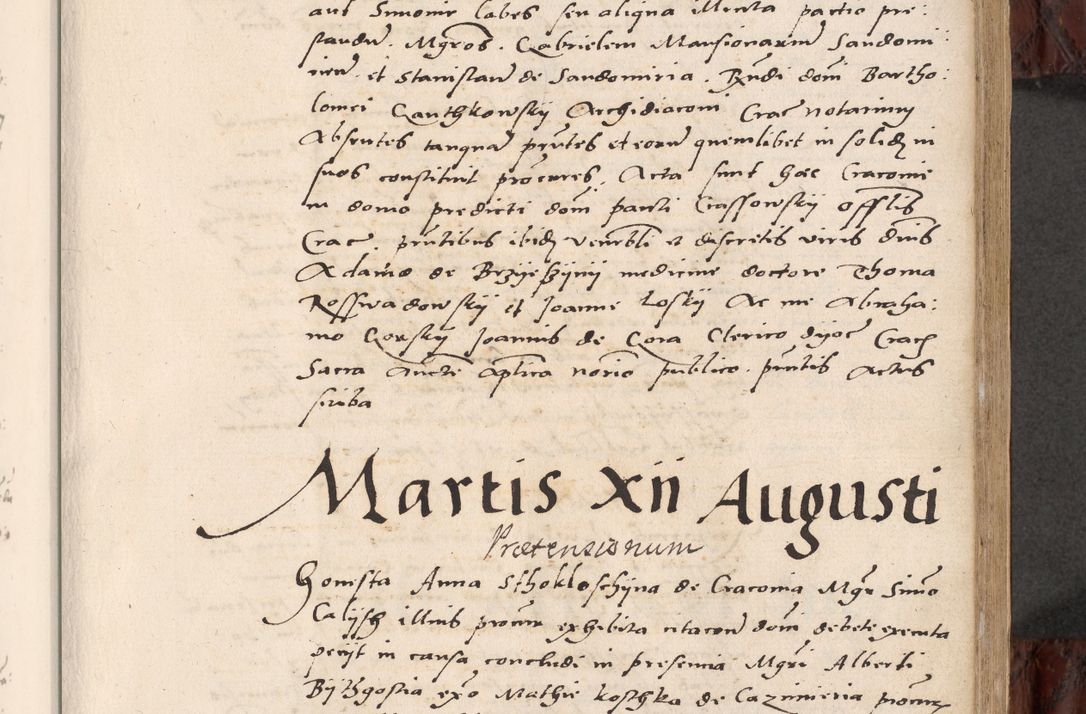 aut Simonie labes seu aliqua illicita pactio pre:
standu. Mgros. Gabrielem Mansionariu Sandomi
rien et Stanislau de Sandomiria. Rndi doni Bartho:
lomei Ganthkowskij Archidiaconi Crac notarium
Absentes tanqua pntes et eorum quemlibet in solidu in
suos constituit procures. Acta sunt hæc Cracovie
in domo predicti doni pauli Crassowskij offlis
Crac. pntibus ibidem venerbli et discretis viris dnis
Adamo de Brzijeszijnij medicine doctore Thoma
Rosswadowskij et Joanne Loskij Ac me Abraha:
mo Gorskij Joannis de Gora Clerico dijoc Crac
Sacra Aucte Aplica norio publico. pntis Actus
scriba
Martis Xii Augusti
Prætensionum
Honesta Anna Sthokloschijna de Cracovia Mgr Simo
Calijsh illius procur exhibita citacoe doni debete executa
petijt in causa concludi in presencia Mgri Alberti
Bijdgostia exo Mathie Koschka de Cazimieria procur